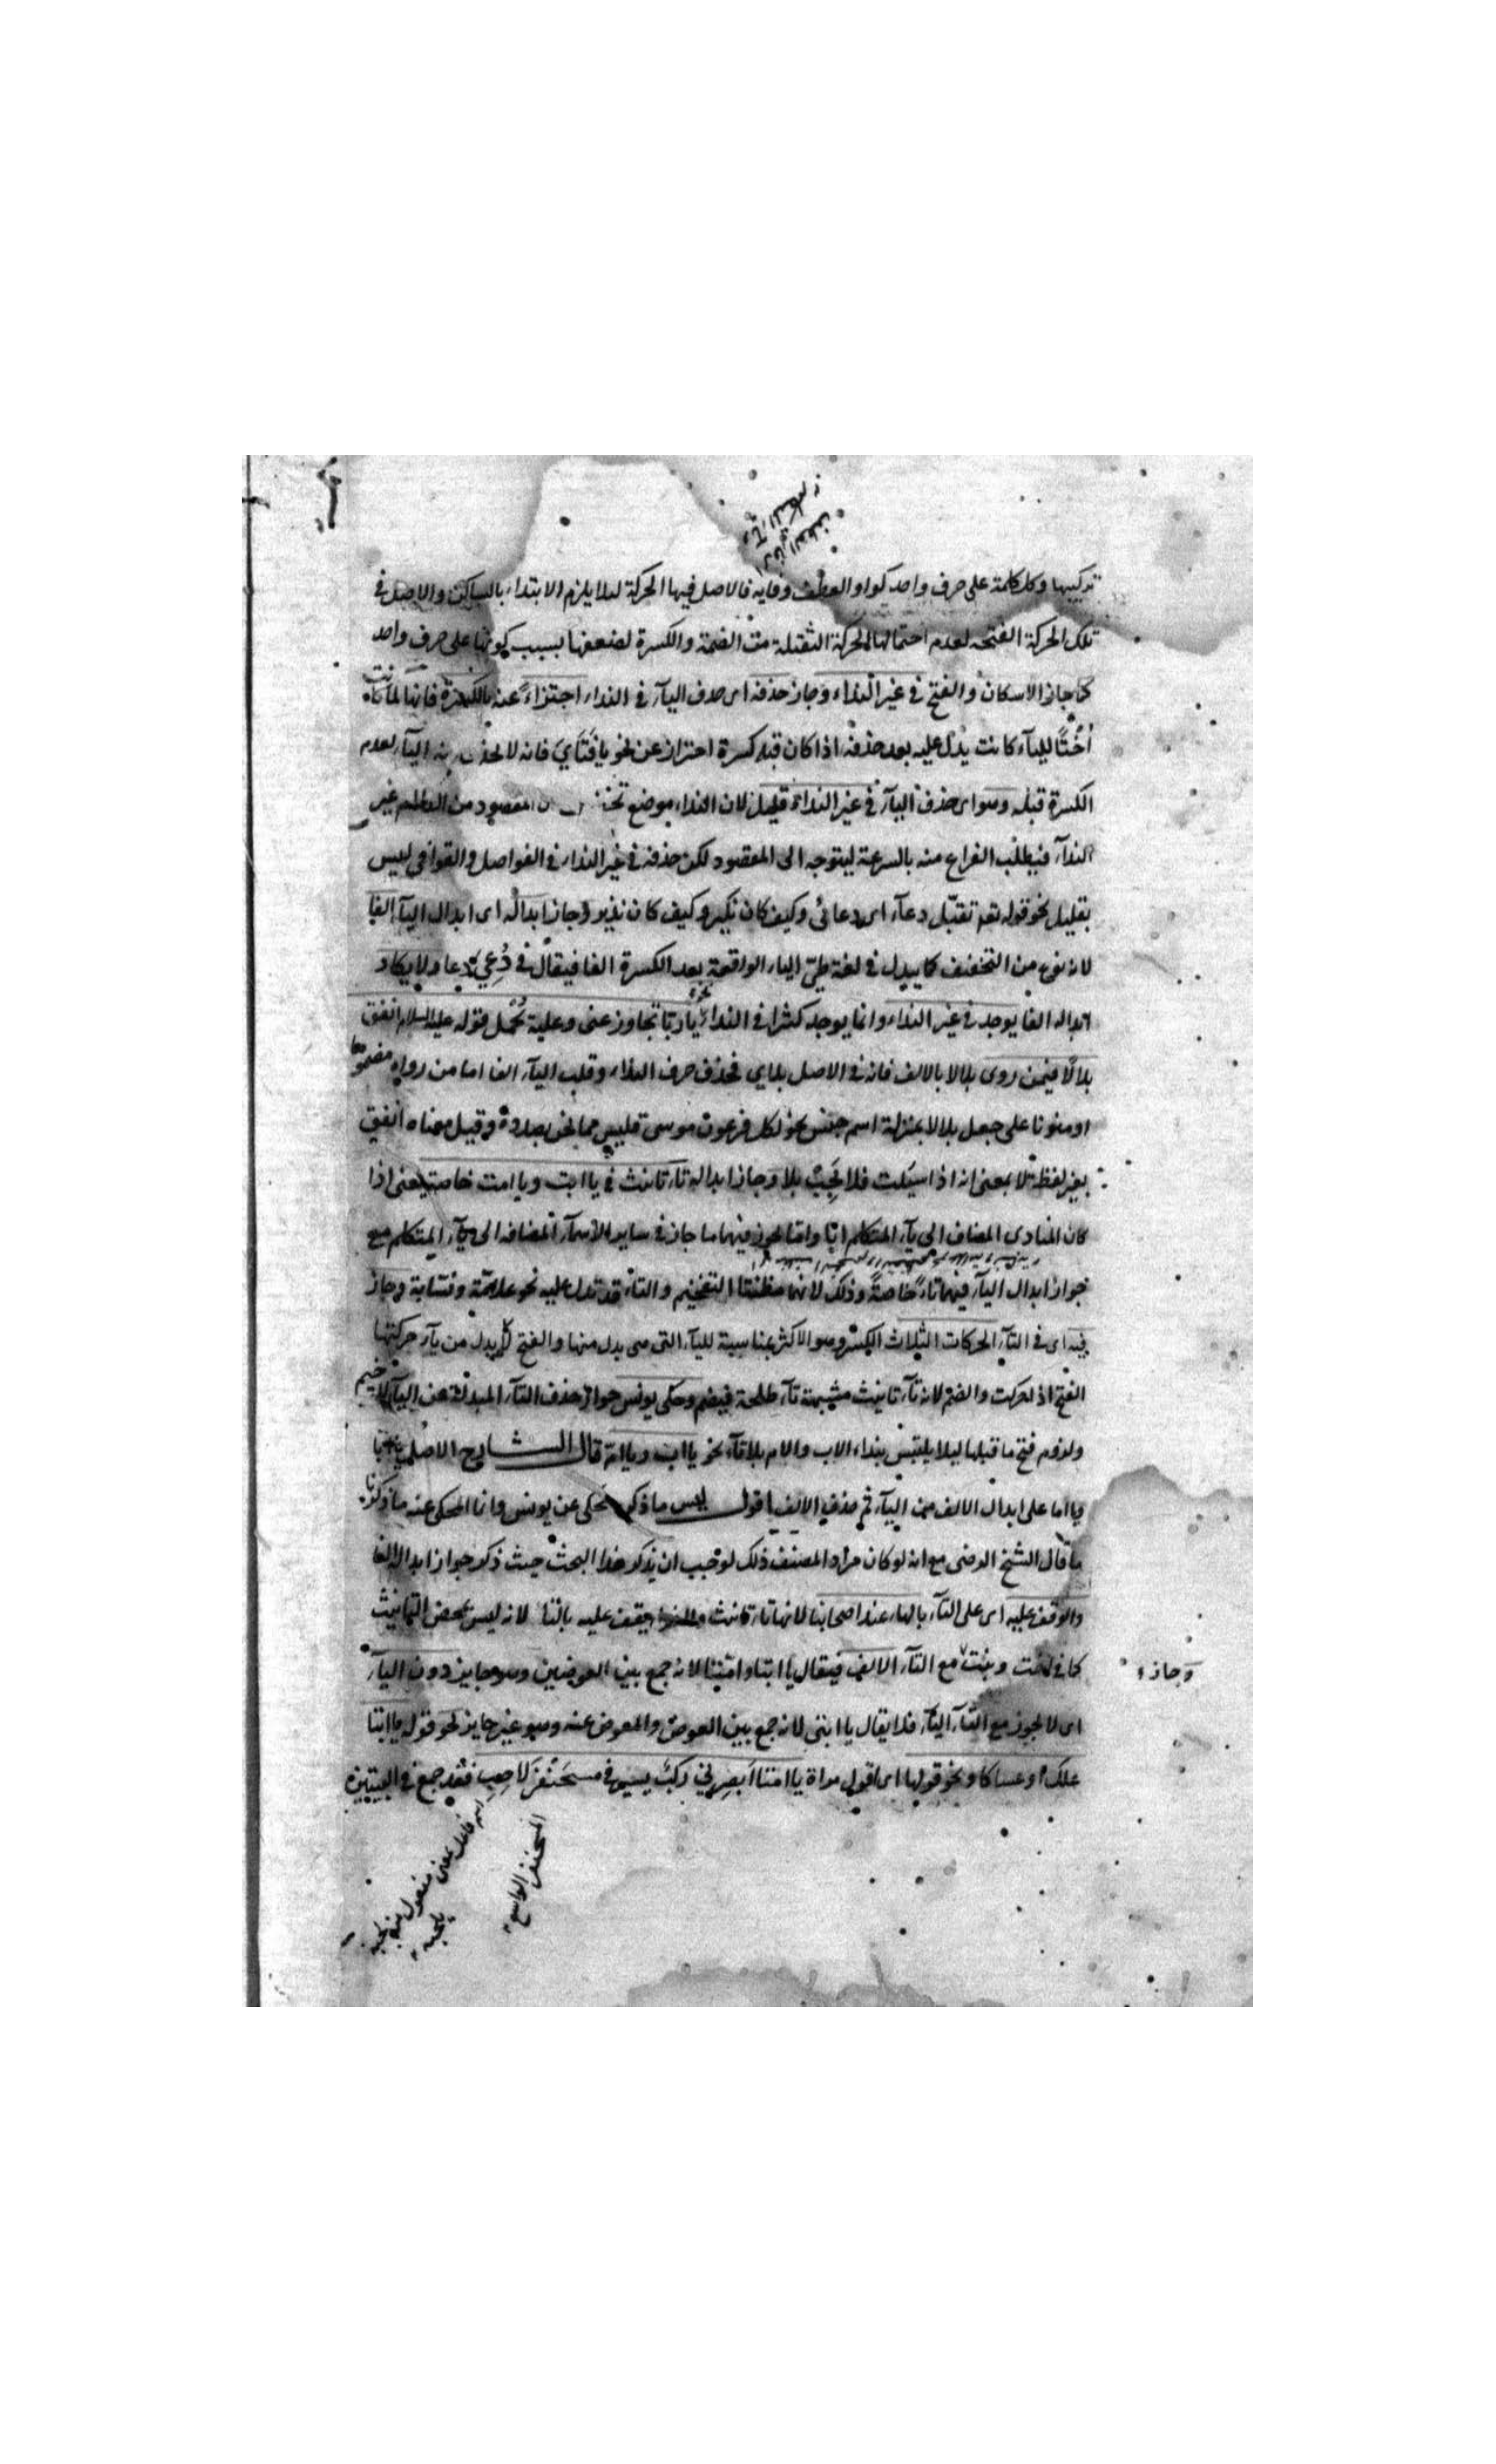 تركيبها وكل كلمة على حرف واحد كواو العطف وفايه فالاصل فيها الحركة ليلا يلزم الابتداء بالساكن والاصل فى
تلك الحركة الفتحة لعدم احتمالها الحركة الثقيلة من الضمة والكسرة لضعفها بسبب كونها على حرف واحد
كما جاز الاسكان والفتح فى غير النداء وجاز حذفه اى حذف اليآء فى النداء اجتزاءً عنه بالكسرة فانها لما كانت
أُخْتًا لليآء كانت يدل عليه بعد حذفه اذا كان قبله كسرة احتراز عن نحو يا فَتَاىَ فانه لا يحذف منه اليآء لعدم
الكسرة قبله وهو اى حذف اليآء فى غير النداء قليل لان النداء موضع المقصود من الكلام غير
النداء فيطلب الفراغ منه بالسرعة ليتوجه الى المقصود لكن حذفه فى غير النداء فى الفواصل والقوافى ليس
بقليل نحو قوله تع تقبّل دعآء اى دعائى وكيف كان نكير وكيف كان نذير وجاز ابداله اى ابدال اليآء الفا
لانه نوع من التخفيف كما يبدل فى لغة طىّ الياء الواقعة بعد الكسرة الفا فيقال فى دُعِىَ دعا ولا يكاد
ابداله الفا يوجد فى غير النداء وانما يوجد كثيرا فى النداء نحو يا ربّا تجاوز عنى وعليه يُحمل قوله عليه السلام انفق
بلالًا فيمن روى بلالا بالالف فانه فى الاصل بلالى فحذف حرف النداء وقلب اليآء الفا اما من رواه مضموما
او منونا على جعل بلالا بمنزلة اسم جنس نحو لكل فرعون موسى فليس مما نحن بصدده وقيل معناه انفق
بغير لفظة لا بمعنى انه اذا سيلت فلا تُجِب بلا وجاز ابداله تآء تانيث فى يا ابت ويا امت خاصة يعنى اذا
كان المنادى المضاف الى يآء المتكلم ابًا واما يجوز فيهما ما جاز فى ساير الاسمآء المضافة الى يآء المتكلم مع
جواز ابدال اليآء فيهما تاءً خاصةً وذلك لانهما مظنتا التفخيم والتاء قد تدل عليه نحو علامة ونسّابة وجاز
فيه اى فى التآء الحركات الثلاث الكسر وهو الاكثر بمناسبة لليآء التى هى بدل منها والفتح لانه بدل من يآء حركتها
الفتح اذ حركت والضم لانه تآء تانيث مشبهة تآء طلحة فيضم وحكى يونس جواز حذف التآء المبدلة عن اليآء للترخيم
ولزوم فتح ما قبلها ليلا يلتبس بنداء الاب والام بلا تآء نحو يا اب ويا ام قال الشارح الاصل يا ابا
ويا اما على ابدال الالف من اليآء ثم حذف الالف اقول ليس ما ذكر يُحكى عن يونس وانما المحكى عنه ما ذكرنا
ما قال الشيخ الرضى مع انه لو كان مراد المصنف ذلك لوجب ان يذكر هذا البحث حيث ذكر جواز ابداله الفا
والوقف عليه اى على التآء بالهاء عند اصحابنا لانها تاء تانيث يقف عليه بالتا لانه ليس بمحض التانيث
كما فى اخت وبنت مع التآء الالف فيقال يا ابتا وامتا لانه جمع بين العوضين وهو جايز دون اليآء
اى لا يجوز مع التآء اليآء فلا يقال يا ابتى لانه جمع بين العوض والمعوض عنه وهو غير جايز نحو قوله يا ابتا
علك او عساكا ونحو قولها اى قول مراة يا امتا ابصرنى ركبٌ يسير فى مسحنفر لاحب فقد جمع فى البيتين
وجاز
المسحنفر الواسع
اسم فاعل بمعنى مفعول